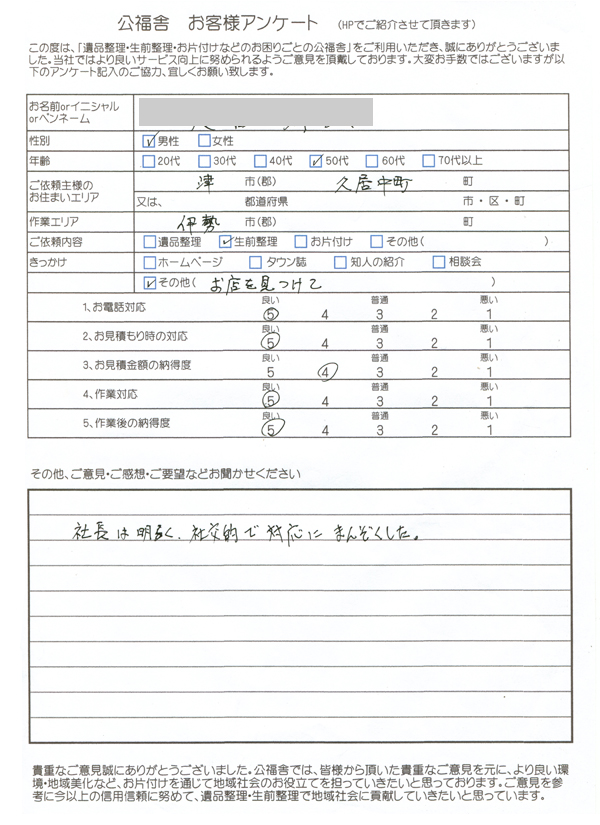 公福舎 お客様アンケート (HPでご紹介させて頂きます)
この度は、「遺品整理・生前整理・お片付けなどのお困りごとの公福舎」をご利用いただき、誠にありがとうございま
した。当社ではより良いサービス向上に努められるようご意見を頂戴しております。大変お手数ではございますが以
下のアンケート記入のご協力、宜しくお願い致します。
お名前orイニシャル
orペンネーム
性別 男性 女性
年齢 20代 30代 40代 50代 60代 70代以上
ご依頼主様の
お住まいエリア
津 市(郡) 久居中町 町
又は、 都道府県 市・区・町
作業エリア 伊勢 市(郡) 町
ご依頼内容 遺品整理 生前整理 お片付け その他( )
きっかけ ホームページ タウン誌 知人の紹介 相談会
その他( お店を見つけて )
良い 普通 悪い
1、お電話対応 5 4 3 2 1
良い 普通 悪い
2、お見積もり時の対応 5 4 3 2 1
良い 普通 悪い
3、お見積金額の納得度 5 4 3 2 1
良い 普通 悪い
4、作業対応 5 4 3 2 1
良い 普通 悪い
5、作業後の納得度 5 4 3 2 1
その他、ご意見・ご感想・ご要望などお聞かせください
社長は明るく、社交的で対応にまんぞくした。
貴重なご意見誠にありがとうございました。公福舎では、皆様から頂いた貴重なご意見を元に、より良い環
境・地域美化など、お片付けを通じて地域社会のお役立てを担っていきたいと思っております。ご意見を参
考に今以上の信用信頼に努めて、遺品整理・生前整理で地域社会に貢献していきたいと思っています。